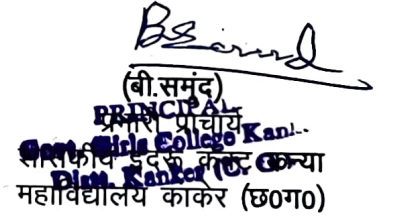 (बी.समुंद)
PRINCIPAL
प्रभारी प्राचार्य
Govt. Girls College Kan
शासकीय कन्या
Distt. Kanker (C. G.)
महाविद्यालय कांकेर (छ0ग0)